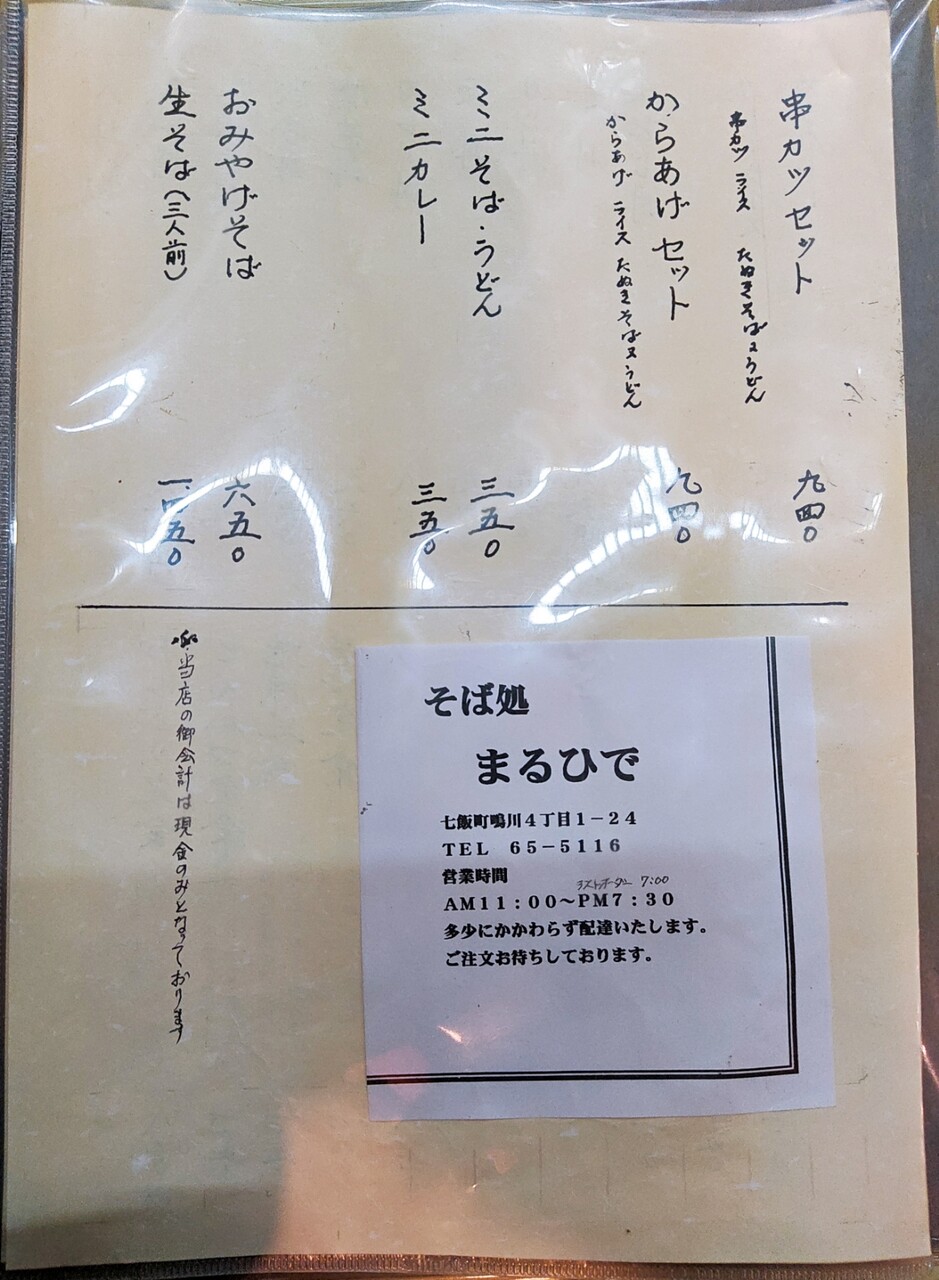 串カツセット 九四〇
串カツ ライス たぬきそば又うどん
からあげセット 九四〇
からあげ ライス たぬきそば又うどん
ミニそば・うどん 三五〇
ミニカレー 三五〇
おみやげそば 六五〇
生そば(三人前) 一四五〇
そば処
まるひで
七飯町鳴川4丁目1-24
TEL 65-5116
営業時間
ラストオーダー 7:00
AM11:00～PM7:30
多少にかかわらず配達いたします。
ご注文お待ちしております。
※当店の御会計は現金のみとなっております